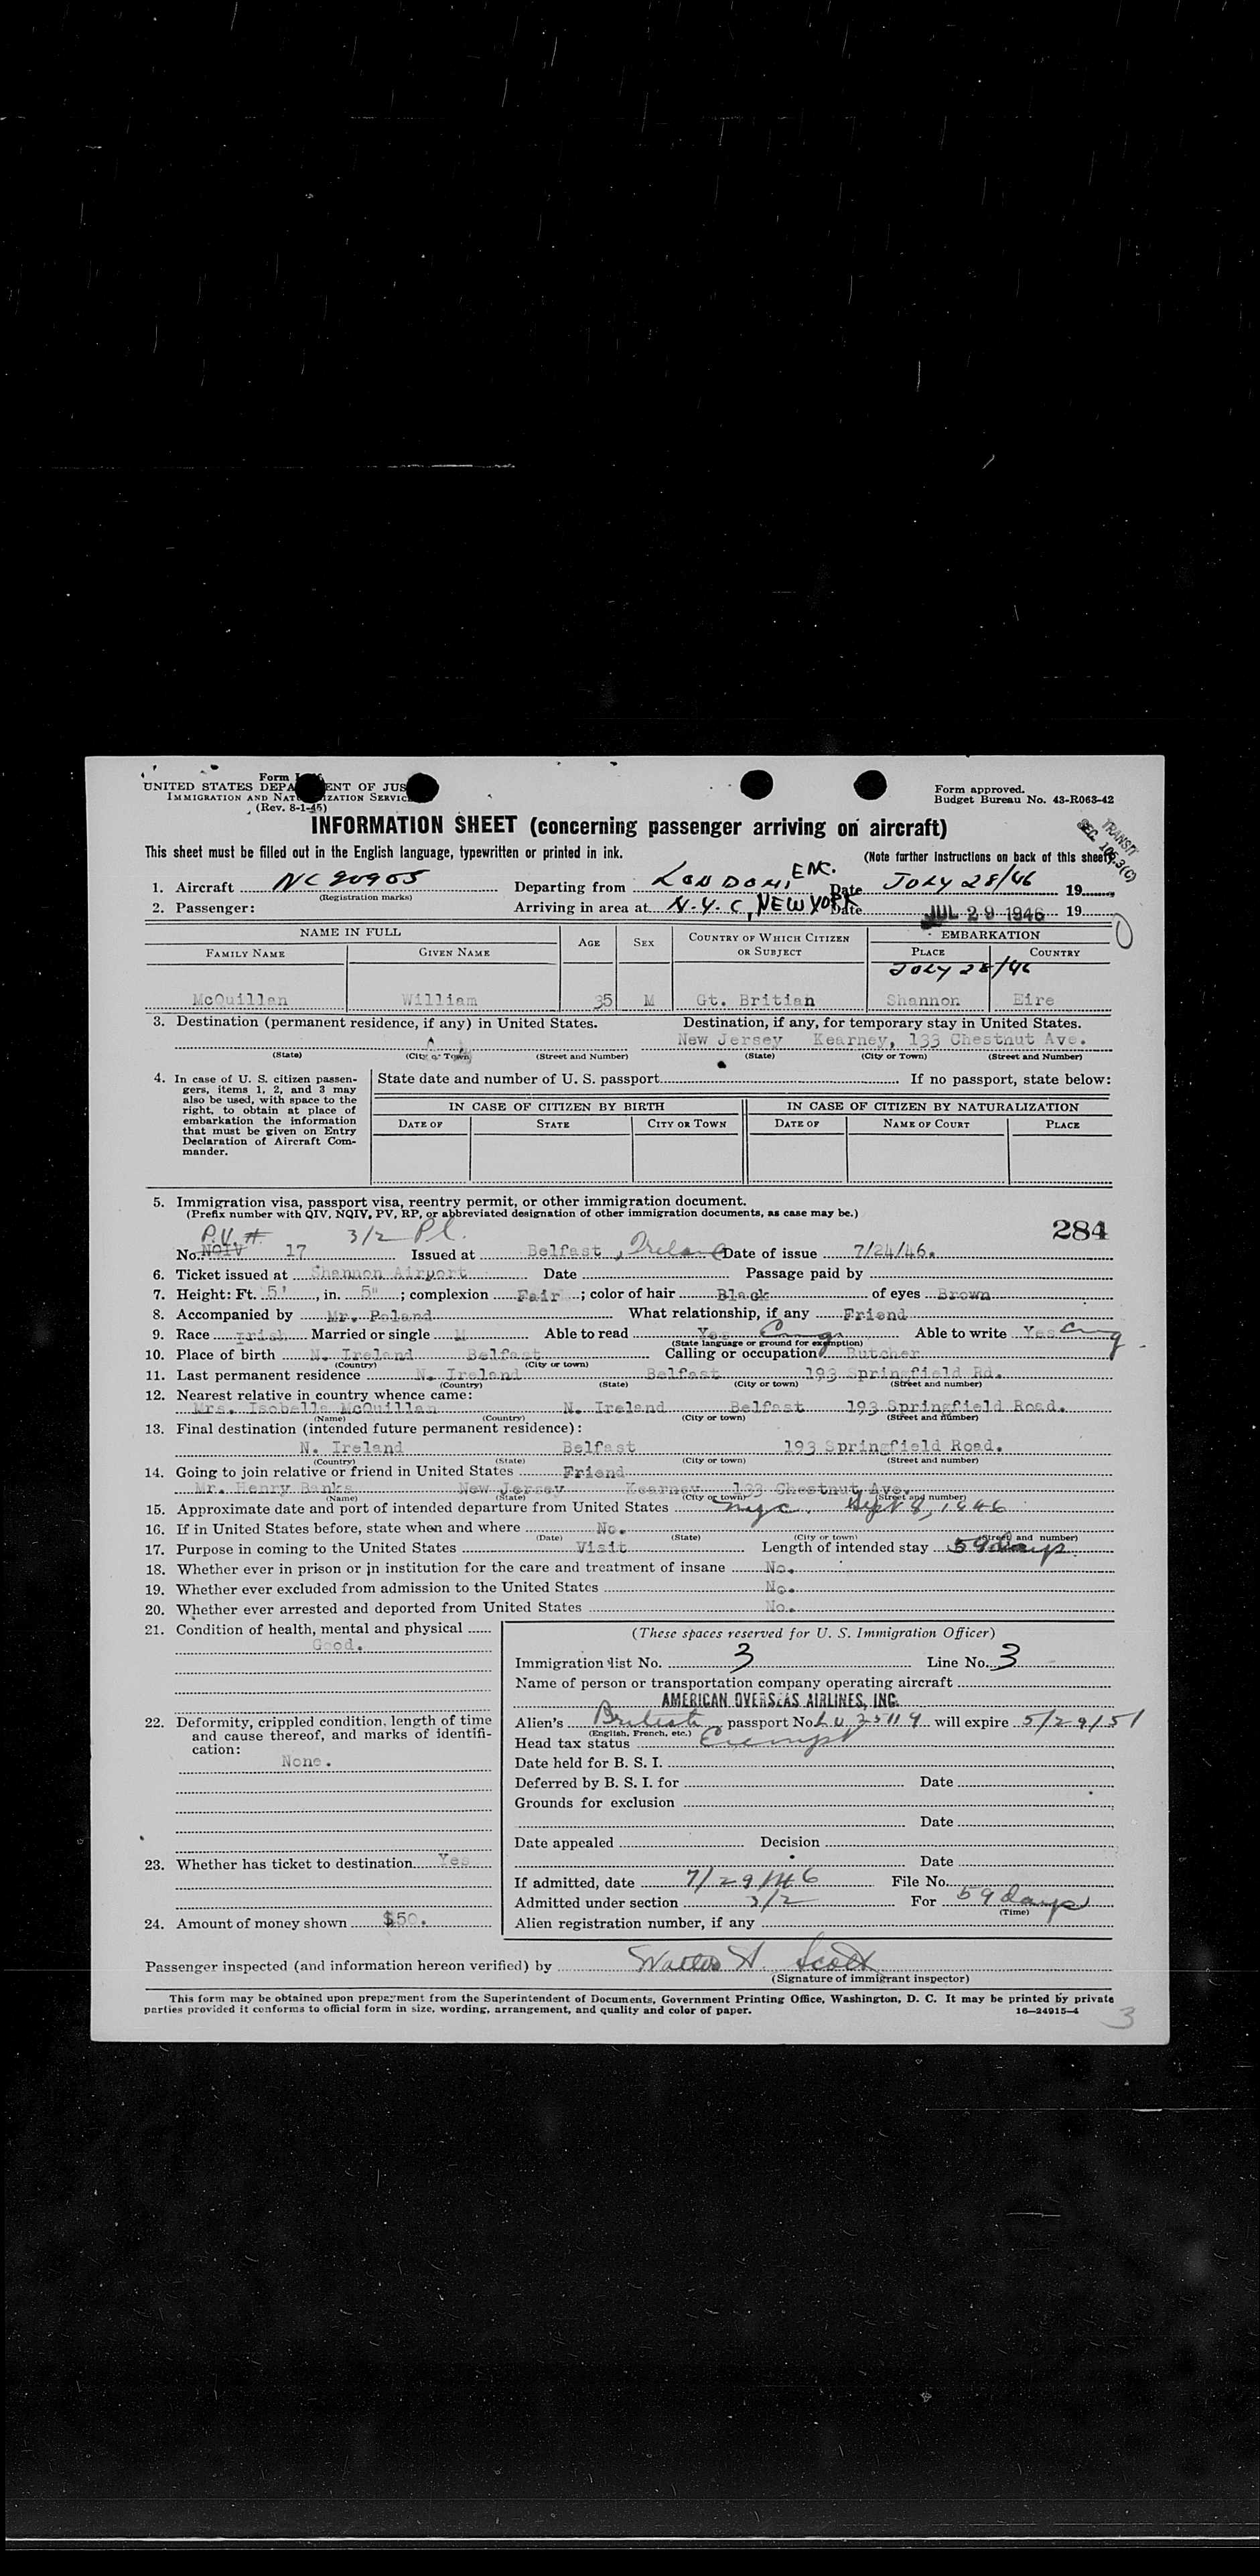 Form I
UNITED STATES DEPA ENT OF JUS
IMMIGRATION AND NAT IZATION SERVIC
(Rev. 8-1-45)
Form approved.
Budget Bureau No. 43-R063-42
INFORMATION SHEET (concerning passenger arriving on aircraft)
TRANSIT
SEC. 105.3(C)
This sheet must be filled out in the English language, typewritten or printed in ink.
(Note further instructions on back of this sheet)
1. Aircraft NC90905 Departing from LONDON, ENC. Date JULY 28/46 19
(Registration marks)
2. Passenger: Arriving in area at N.Y.C, NEW YORK Date JUL 29 1946 19
NAME IN FULL AGE SEX COUNTRY OF WHICH CITIZEN OR SUBJECT EMBARKATION
FAMILY NAME GIVEN NAME PLACE COUNTRY
JULY 28/46
McQuillan William 35 M Gt. Britian Shannon Eire
3. Destination (permanent residence, if any) in United States. Destination, if any, for temporary stay in United States.
New Jersey Kearney, 133 Chestnut Ave.
(State) (City or Town) (Street and Number) (State) (City or Town) (Street and Number)
4. In case of U. S. citizen passengers, items 1, 2, and 3 may also be used, with space to the right, to obtain at place of embarkation the information that must be given on Entry Declaration of Aircraft Commander.
State date and number of U. S. passport If no passport, state below:
IN CASE OF CITIZEN BY BIRTH IN CASE OF CITIZEN BY NATURALIZATION
DATE OF STATE CITY OR TOWN DATE OF NAME OF COURT PLACE
5. Immigration visa, passport visa, reentry permit, or other immigration document.
(Prefix number with QIV, NQIV, PV, RP, or abbreviated designation of other immigration documents, as case may be.)
284
P.V. # 3/2 Pl.
No. NQIV 17 Issued at Belfast, Ireland Date of issue 7/24/46.
6. Ticket issued at Shannon Airport Date Passage paid by
7. Height: Ft. 5', in. 5"; complexion Fair; color of hair Black of eyes Brown
8. Accompanied by Mr. Poland What relationship, if any Friend
9. Race Irish Married or single M Able to read Yes Eng Able to write Yes Eng
(State language or ground for exemption)
10. Place of birth N. Ireland Belfast Calling or occupation Butcher
(Country) (City or town)
11. Last permanent residence N. Ireland Belfast 193 Springfield Rd.
(Country) (State) (City or town) (Street and number)
12. Nearest relative in country whence came:
Mrs. Isobella McQuillan N. Ireland Belfast 193 Springfield Road.
(Name) (Country) (City or town) (Street and number)
13. Final destination (intended future permanent residence):
N. Ireland Belfast 193 Springfield Road.
(Country) (State) (City or town) (Street and number)
14. Going to join relative or friend in United States Friend
Mr. Henry Banks New Jersey Kearney 133 Chestnut Ave.
(Name) (State) (City or town) (Street and number)
15. Approximate date and port of intended departure from United States nyc. Sept 8, 1946
16. If in United States before, state when and where No.
(Date) (State) (City or town) (Street and number)
17. Purpose in coming to the United States Visit Length of intended stay 59 days.
18. Whether ever in prison or in institution for the care and treatment of insane No.
19. Whether ever excluded from admission to the United States No.
20. Whether ever arrested and deported from United States No.
21. Condition of health, mental and physical
Good.
22. Deformity, crippled condition, length of time and cause thereof, and marks of identification:
None.
23. Whether has ticket to destination Yes
24. Amount of money shown $50.
(These spaces reserved for U. S. Immigration Officer)
Immigration list No. 3 Line No. 3
Name of person or transportation company operating aircraft
AMERICAN OVERSEAS AIRLINES, INC.
Alien's British passport No. L U 25119 will expire 5/29/51
(English, French, etc.)
Head tax status Exempt
Date held for B. S. I.
Deferred by B. S. I. for Date
Grounds for exclusion
Date
Date appealed Decision
Date
If admitted, date 7/29/46 File No.
Admitted under section 3/2 For 59 days
(Time)
Alien registration number, if any
Passenger inspected (and information hereon verified) by Walter H. Scott
(Signature of immigrant inspector)
This form may be obtained upon prepayment from the Superintendent of Documents, Government Printing Office, Washington, D. C. It may be printed by private
parties provided it conforms to official form in size, wording, arrangement, and quality and color of paper. 16—24915-4
3